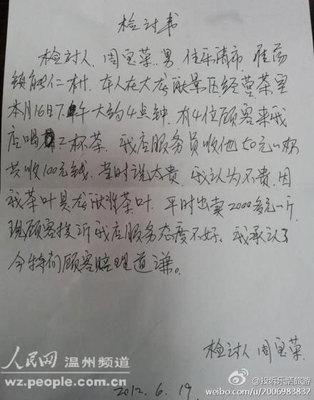 检讨书
检讨人、周宝荣、男 住乐清市 雁荡
镇能仁村. 本人在大龙湫景区经营茶室
本月16日下午大约4点钟. 有4位顾客来我
店喝 2杯茶. 我店服务员收他50元一杯
共收100元钱. 当时说太贵. 我认为不贵. 因
我茶叶是龙湫背茶叶. 平时出卖2000多元一斤.
现顾客投诉我店服务态度不好. 我承认了
今特向顾客赔理道谦。
检讨人 周宝荣
2012. 6. 19.
人民网 温州频道
wz.people.com.cn
weibo.com/u/2006983832